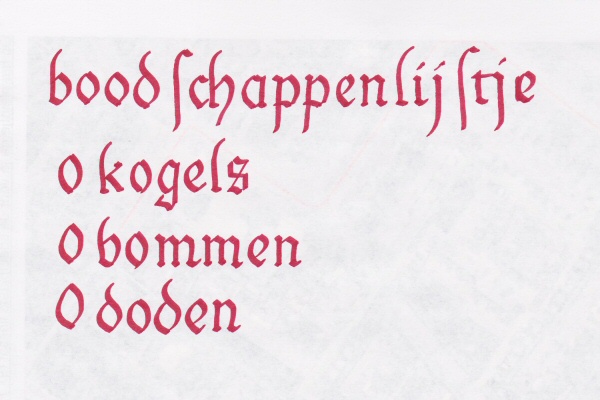 boodſchappenlijſtje
0 kogels
0 bommen
0 doden